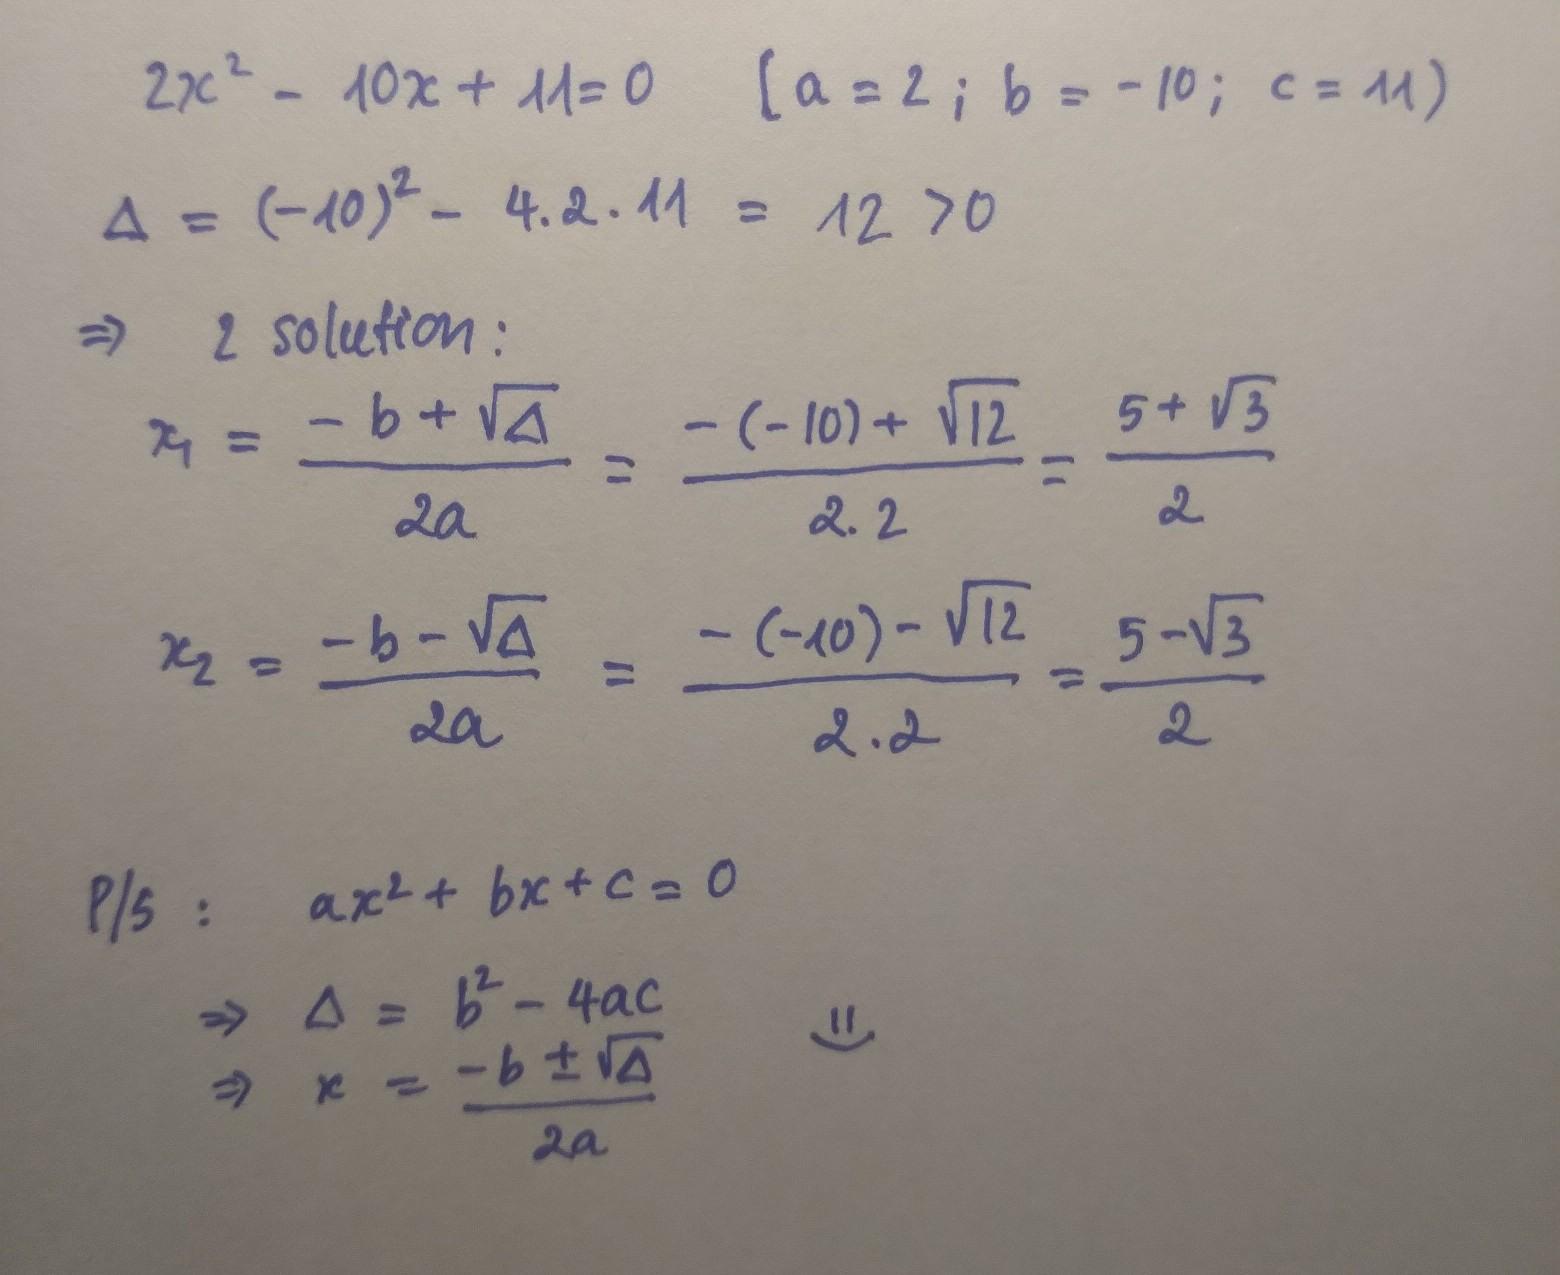 2x² - 10x + 11 = 0 (a = 2 ; b = -10 ; c = 11)
Δ = (-10)² - 4.2.11 = 12 > 0
⇒ 2 solution :
x₁ = (-b + √Δ)/2a = (-(-10) + √12)/2.2 = (5 + √3)/2
x₂ = (-b - √Δ)/2a = (-(-10) - √12)/2.2 = (5 - √3)/2
P/S : ax² + bx + c = 0
⇒ Δ = b² - 4ac
⇒ x = (-b ± √Δ)/2a